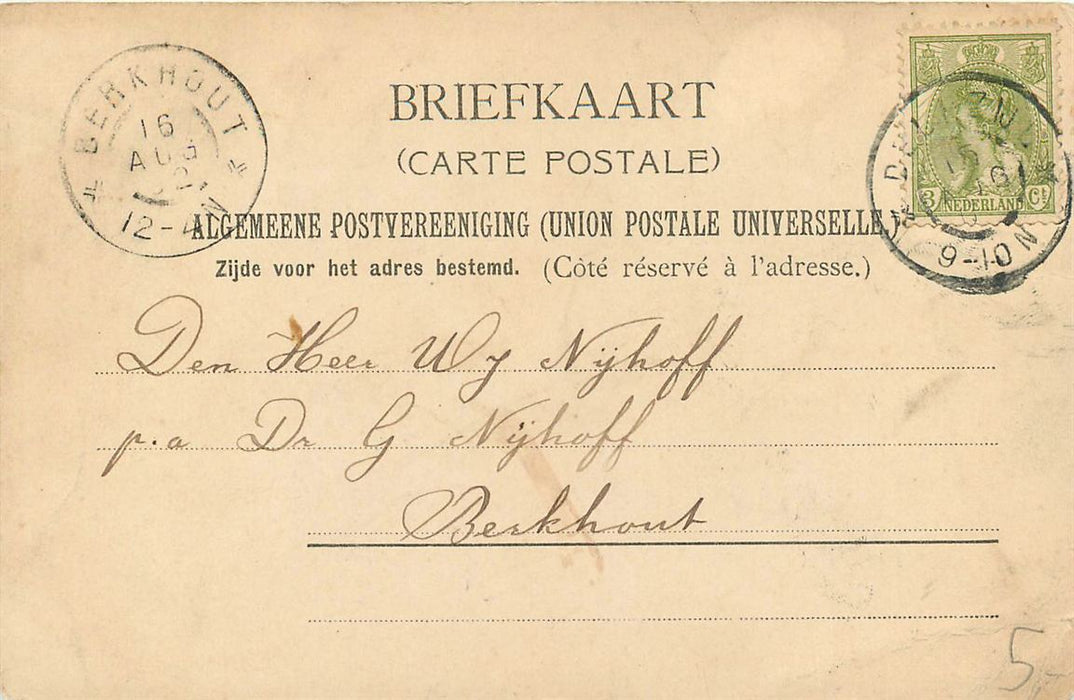 BRIEFKAART
(CARTE POSTALE)
ALGEMEENE POSTVEREENIGING (UNION POSTALE UNIVERSELLE.)
Zijde voor het adres bestemd. (Côté réservé à l'adresse.)
BERKHOUT
16
AUG
12-4N
3 Ct
NEDERLAND
9-10N
Den Heer W J Nijhoff
p.a Dr G Nijhoff
Berkhout
5-